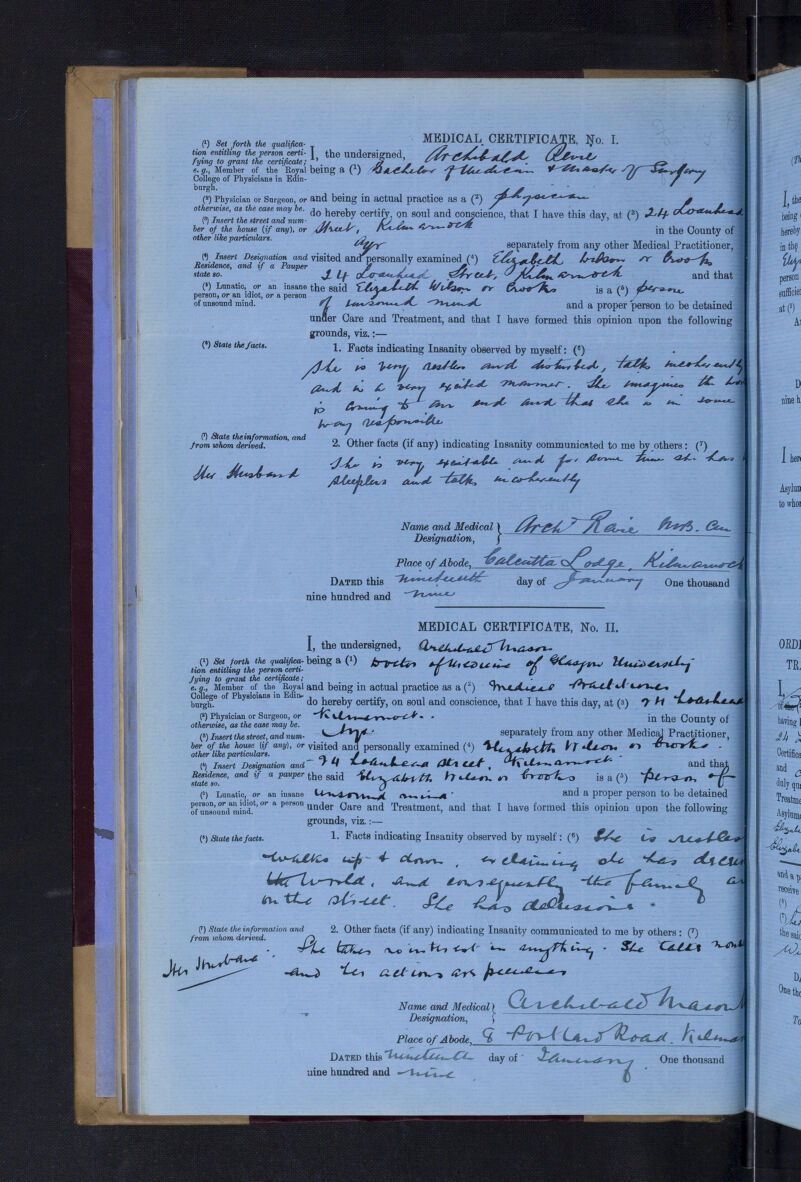 MEDICAL CERTIFICATE, No. I.
(¹) Set forth the qualifica-
tion entitling the person certi-
fying to grant the certificate;
e. g., Member of the Royal
College of Physicians in Edin-
burgh.
I, the undersigned, Archibald
being a (¹) Bachelor of Medicine & Master of Surgery
(²) Physician or Surgeon, or
otherwise, as the case may be.
and being in actual practice as a (²) physician
(³) Insert the street and num-
ber of the house (if any), or
other like particulars.
do hereby certify, on soul and conscience, that I have this day, at (³) 24 Loanhead
Street, Kilmarnock in the County of
Ayr separately from any other Medical Practitioner,
(⁴) Insert Designation and
Residence, and if a Pauper
state so.
visited and personally examined (⁴) Elizabeth Wilson or Crooks
24 Loanhead Street, Kilmarnock and that
(⁵) Lunatic, or an insane
person, or an idiot, or a person
of unsound mind.
the said Elizabeth Wilson or Crooks is a (⁵) person
of unsound mind and a proper person to be detained
under Care and Treatment, and that I have formed this opinion upon the following
grounds, viz.:—
(⁶) State the facts.
1. Facts indicating Insanity observed by myself: (⁶)
She is very restless and disturbed, talks incoherently
and in a very excited manner. She imagines the
is coming to an end and that she is in some
way responsible
(⁷) State the information, and
from whom derived.
2. Other facts (if any) indicating Insanity communicated to me by others: (⁷)
Her Husband
She is very excitable and for some time she has
sleepless and talks incoherently
Name and Medical
Designation,
Archd Raie M.B. Cm
Place of Abode, Calcutta Lodge, Kilmarnock
DATED this nineteenth day of January One thousand
nine hundred and nine
MEDICAL CERTIFICATE, No. II.
I, the undersigned, Archibald Mason
(¹) Set forth the qualifica-
tion entitling the person certi-
fying to grant the certificate;
e. g., Member of the Royal
College of Physicians in Edin-
burgh.
being a (¹) Doctor of Medicine of Glasgow University
and being in actual practice as a (²) Medical Practitioner
(²) Physician or Surgeon, or
otherwise, as the case may be.
do hereby certify, on soul and conscience, that I have this day, at (³) 24 Loanhead
Kilmarnock. in the County of
(³) Insert the street, and num-
ber of the house (if any), or
other like particulars.
Ayr separately from any other Medical Practitioner,
visited and personally examined (⁴) Elizabeth Wilson or Crooks.
(⁴) Insert Designation and
Residence, and if a pauper
state so.
24 Loanhead Street, Kilmarnock and that
the said Elizabeth Wilson or Crooks is a (⁵) Person of
(⁵) Lunatic, or an insane
person, or an idiot, or a person
of unsound mind.
unsound mind and a proper person to be detained
under Care and Treatment, and that I have formed this opinion upon the following
grounds, viz.:—
(⁶) State the facts.
1. Facts indicating Insanity observed by myself: (⁶) She is restless
walks up & down, exclaiming she has
the World, and consequently the family
on the street. She has delusions.
(⁷) State the information and
from whom derived.
2. Other facts (if any) indicating Insanity communicated to me by others: (⁷)
Her Husband.
She takes no interest in anything. She
and her actions are peculiar
Name and Medical
Designation,
Archibald Mason
Place of Abode, 8 Portland Road. Kilmar
DATED this nineteenth day of January One thousand
nine hundred and nine